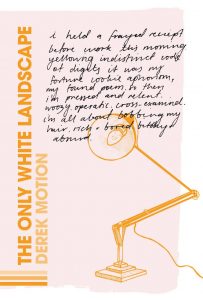 i held a frayed receipt
before work this morning
yellowing indistinct code
of digits it was my
fortune cookie aphorism,
my found poem. by then
i'm pressed and relent.
woozy operatic, cross-examined.
i'm all about bobbing my
hair, rich + bored
THE ONLY WHITE LANDSCAPE
DEREK MOTION